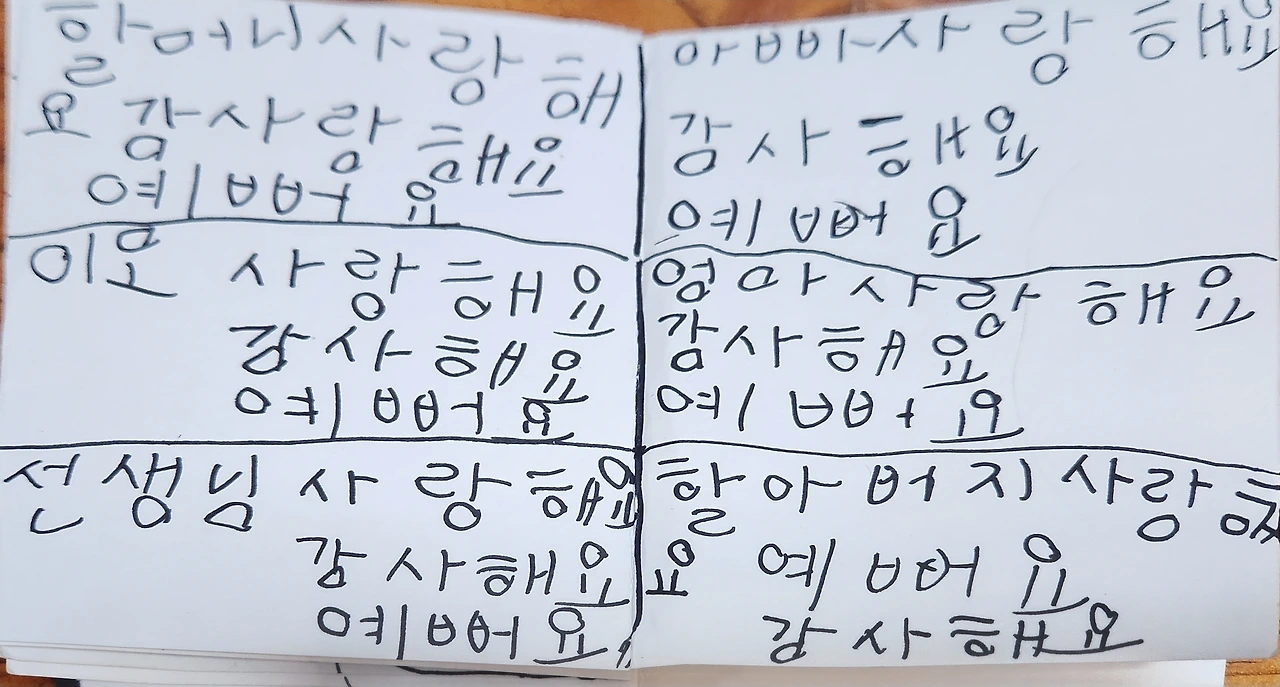 할머니사랑해
요 감사랑해요
예뻐요
이모 사랑해요
감사해요
예뻐요
선생님 사랑해요
감사해요
예뻐요
아빠사랑해요
감사해요
예뻐요
엄마사랑해요
감사해요
예뻐요
할아버지사랑해
요 예뻐요
감사해요